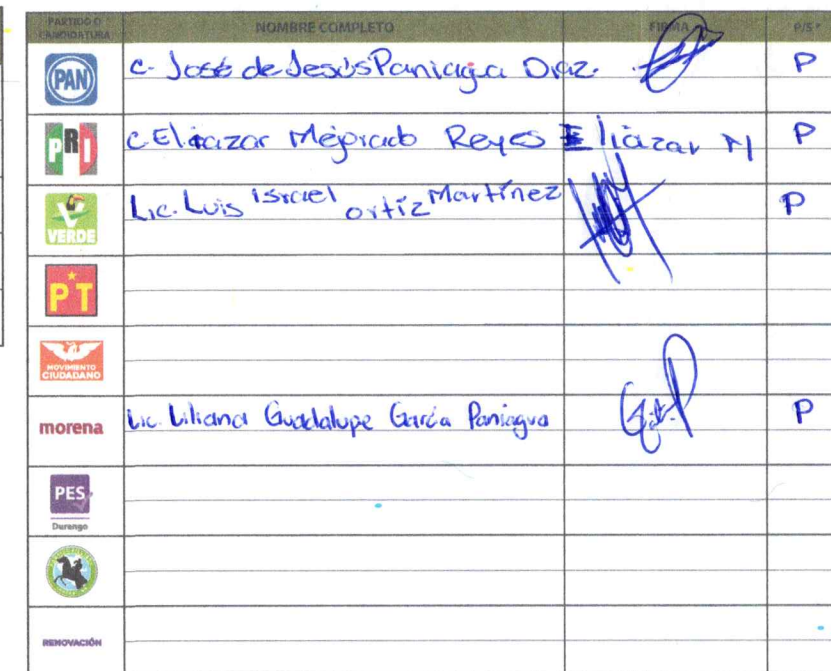 PARTIDO O CANDIDATURA NOMBRE COMPLETO FIRMA P/S*
PAN C. José de Jesús Paniagua Diaz. P
PRI C. Eleazar Reyes Eliazar M P
VERDE Lic. Luis Israel ortíz Martínez P
PT
MOVIMIENTO CIUDADANO
morena Lic. Liliana Guadalupe García Paniagua P
PES
Durango
RENOVACIÓN